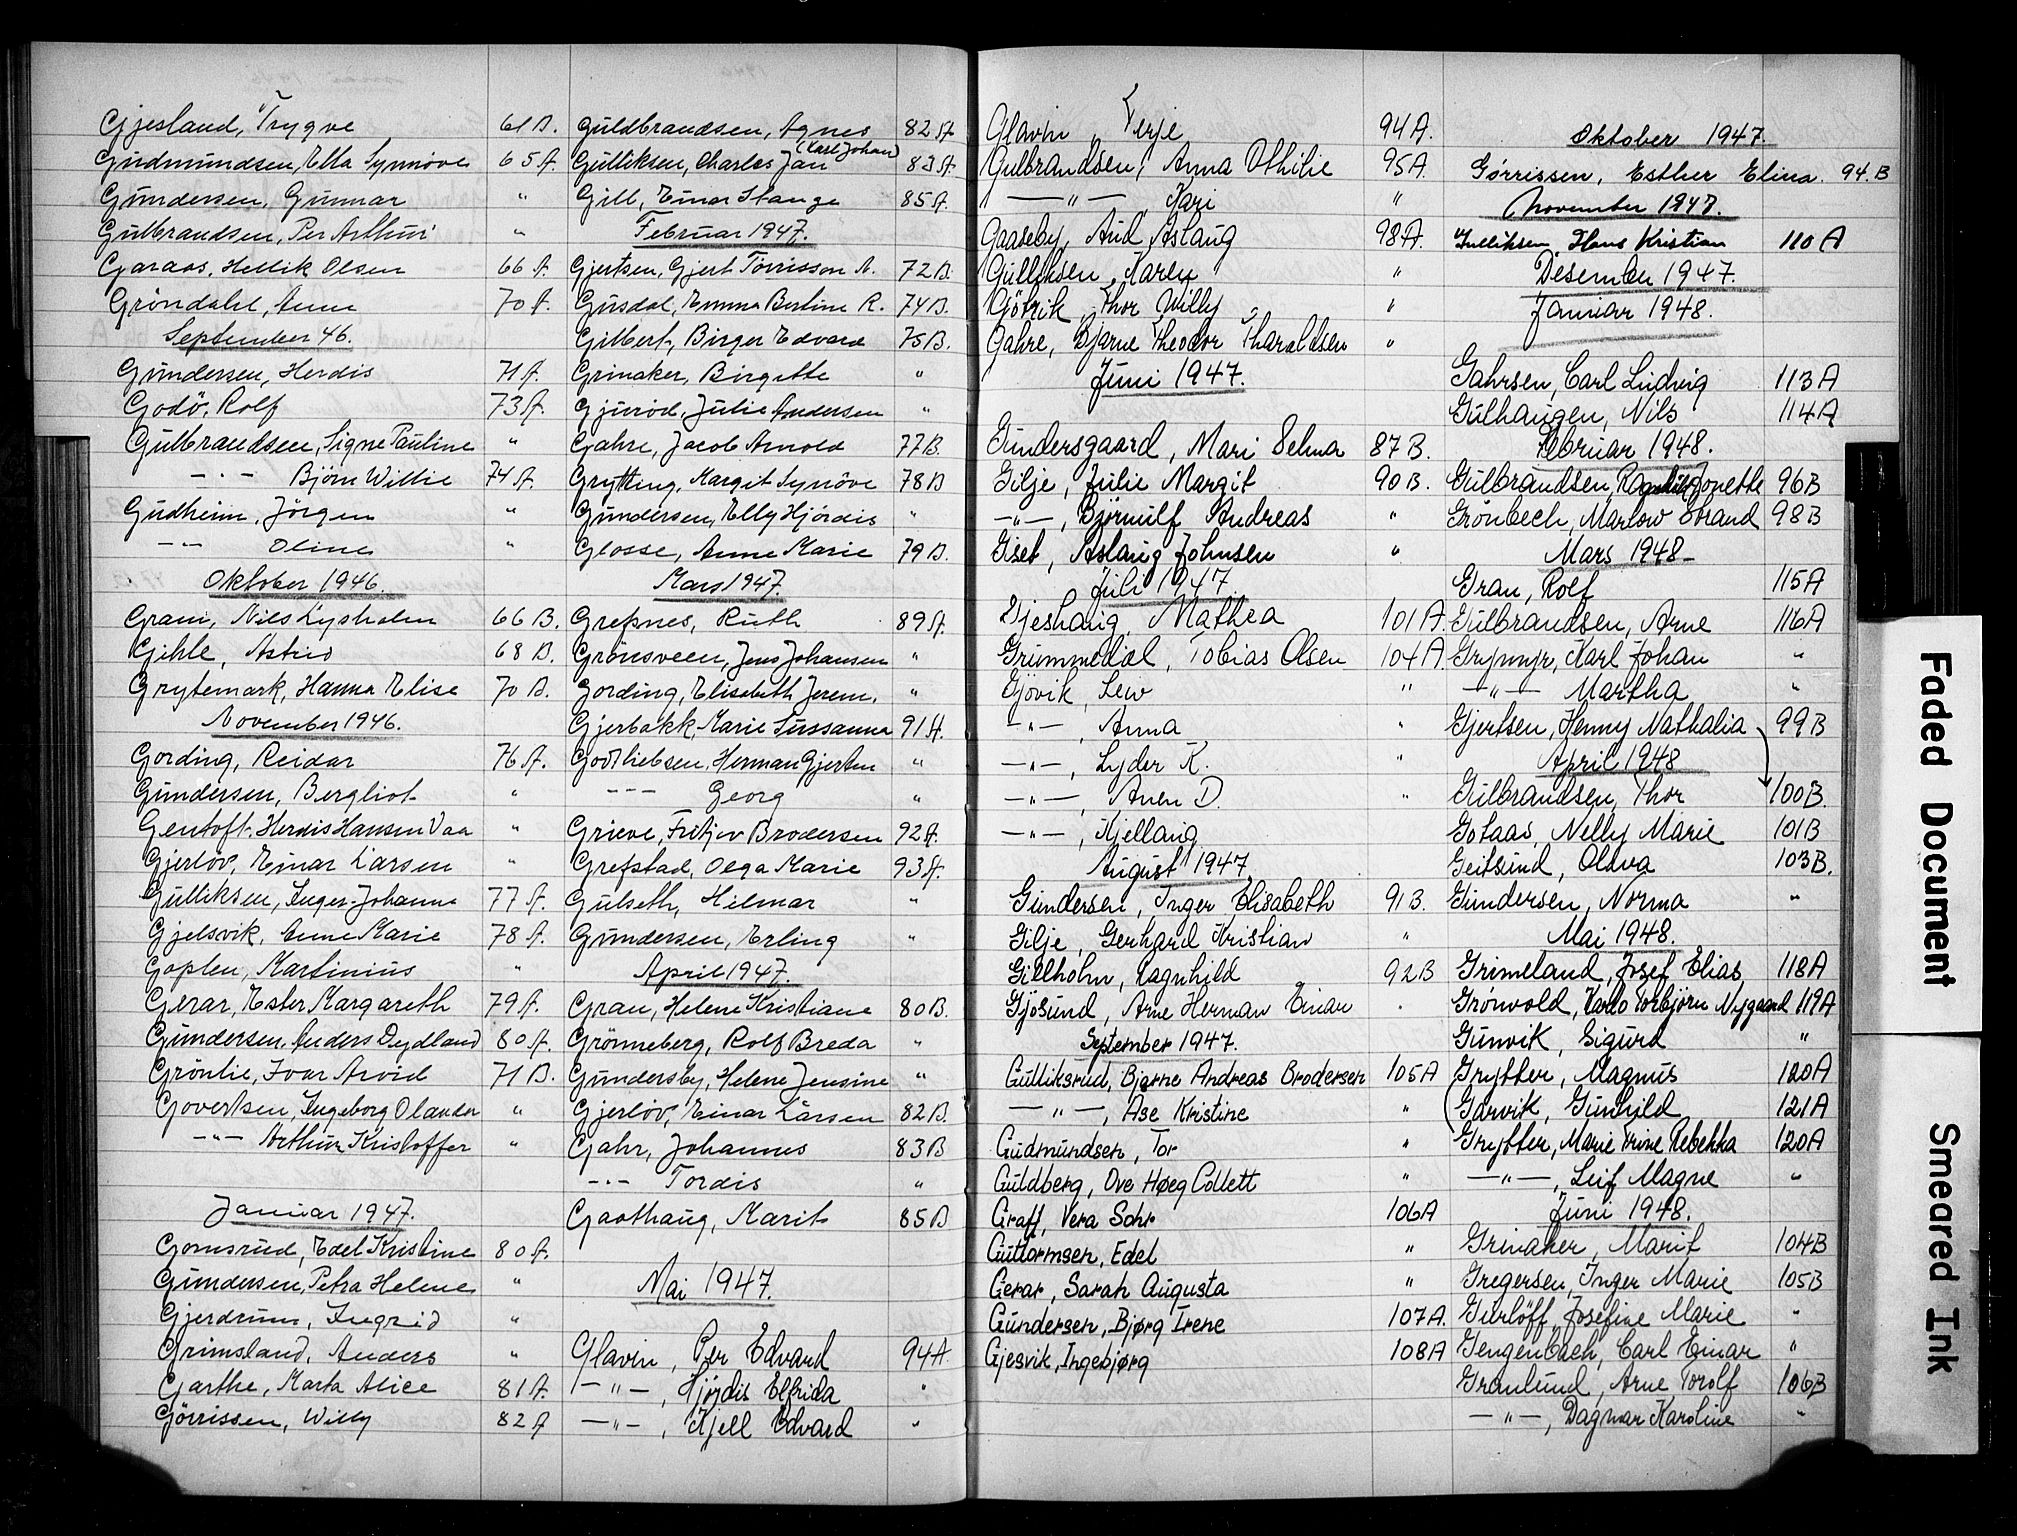 Gjesland, Trygve 61B.
Gudmundsen, Ella Synnöve 65A.
Gundersen, Gunnar "
Gulbrandsen, Per Arthur "
Garaas, Hellik Olsen 66A.
Gröndahl, Anne 70A.
September 46.
Gundersen, Herdis 71A.
Godö, Rolf 73A.
Gulbrandsen, Signe Pauline "
-"- Björn Willie 74A.
Gudheim, Jörgen "
-"- Oline "
Oktober 1946.
Gram, Nils Lysholm 66B.
Gihle, Astrid 68B.
Grytemark, Hanna Elise 70B.
November 1946.
Gording, Reidar 76A.
Gundersen, Bergliot "
Gentoft, Herdis Hansen Vaa "
Gjerlöv, Einar Larsen "
Gulliksen, Inger-Johanne 77A.
Gjelsvik, Anne Marie 78A.
Goplen, Martinius "
Gerar, Ester Margareth 79A.
Gundersen, Anders Dydland 80A.
Grönlie, Ivar Arvid 71B.
Govertsen, Ingeborg Olander "
-"- Arthur Kristoffer "
Januar 1947.
Gomsrud, Edel Kristine 80A.
Gundersen, Petra Helene "
Gjerdrum, Ingrid "
Grimsland, Anders "
Garthe, Marta Alice 81A.
Görrissen, Willy 82A
Guldbrandsen, Agnes 82A
(Karl Johan)
Gulliksen, Charles Jan 83A.
Gill, Einar Stange 85A.
Februar 1947.
Gjertsen, Gjert Törrisson N. 72B.
Gusdal, Emma Bertine R. 74B.
Gilbert, Birger Edvard 75B.
Grinaker, Birgitte "
Gjuröd, Julie Andersen "
Gahre, Jacob Arnold 77B.
Grytting, Margit Synöve 78B
Gundersen, Elly Hjördis "
Glosse, Anne Marie 79B.
Mars 1947.
Grepnes, Ruth 89A.
Grönsveen, Jens Johansen "
Gording, Elisabeth Jerem. "
Gjerbakk, Marie Sussanna 91A.
Godtliebsen, Herman Gjertsen "
--- Georg "
Grieve, Fritjov Brodersen 92A.
Grefstad, Olga Marie 93A.
Gulseth, Hilmar "
Gundersen, Erling "
April 1947.
Gran, Helene Kristiane 80B.
Grönneberg, Rolf Breda "
Gundersby, Helene Jensine "
Gjerlöv, Einar Larsen 82B.
Gahr, Johannes 83B
-"- Tordis "
Gaathaug, Marit 85B
Mai 1947.
Glavin, Per Edvard 94A.
-"-, Hjördis Elfrida "
-"-, Kjell Edvard "
Glavin, Terje 94A.
Gulbrandsen, Anna Othilie 95A.
-"- Kari "
Gaaseby, Aud Aslaug 98A.
Gulliksen, Karen "
Götrik, Thor Willy "
Gahre, Bjarne Theodor Tharaldsen "
Juni 1947.
Gundersgaard, Mari Selma 87B.
Gilje, Julie Margit 90B.
-"-, Björnulf Andreas "
Giset, Aslaug Johnsen "
Juli 1947.
Gjeshaug Mathea 101A
Grummedal, Tobias Olsen 104A
Gjövik, Lew "
-"-, Anna "
-"-, Lyder K. "
-"-, Anen D. "
-"-, Kjellaug
August 1947.
Gundersen, Inger Elisabeth 91B.
Gilje, Gerhard Kristian "
Gillholm, Ragnhild 92B
Gjosund, Arne Herman Einar "
September 1947.
Gulliksrud, Bjarne Andreas Brodersen 105A
-"-, Ase Kristine "
Gudmundsen, Tor "
Guldberg, Ove Høeg Collett "
Graff, Vera Sohr 106A
Guttormsen, Edel "
Gerar, Sarah Augusta "
Gundersen, Bjørg Irene 107A.
Gjesvik, Ingebjørg 108A
Oktober 1947.
Gørrissen, Esther Elina. 94.B
November 1947.
Gulliksen, Hans Kristian 110A
Desember 1947.
Januar 1948.
Gahrsen, Carl Ludvig 113A
Gulhaugen, Nils 114A
Februar 1948.
Gulbrandsen, Ragnhild Jonette 96B
Grönbech, Marlow Strand 98B
Mars 1948-
Gran, Rolf 115A
Gulbrandsen, Arne 116A
Grymyr, Karl Johan "
-"- Martha "
Gjertsen, Henny Nathalia 99B
April 1948
Gulbrandsen, Thor 100B.
Gotaas, Nelly Marie 101B
Geitsund, Olava 103B.
Gundersen, Norma "
Mai 1948.
Grimeland, Josef Elias 118A
Grönvold, Karlo Torbjörn Nygaard 119A
Gunvik, Sigurd "
Grytter, Magnus 120A
Garvik, Gunhild 121A
Grytter, Marie Trine Rebekka 120A
-"-, Leif Magne "
Juni 1948.
Grinaker, Marit 104B
Gregersen, Inger Marie 105B
Gierlöff, Josefine Marie "
Gengenbach, Carl Einar "
Granlund, Arne Torolf 106B
-"-, Dagmar Karoline "
Faded Document
Smeared Ink